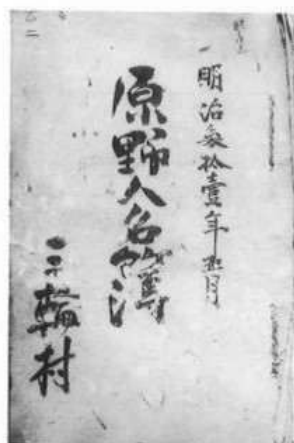 明治参拾壹年五月
原野人名簿
三輪村
乙二